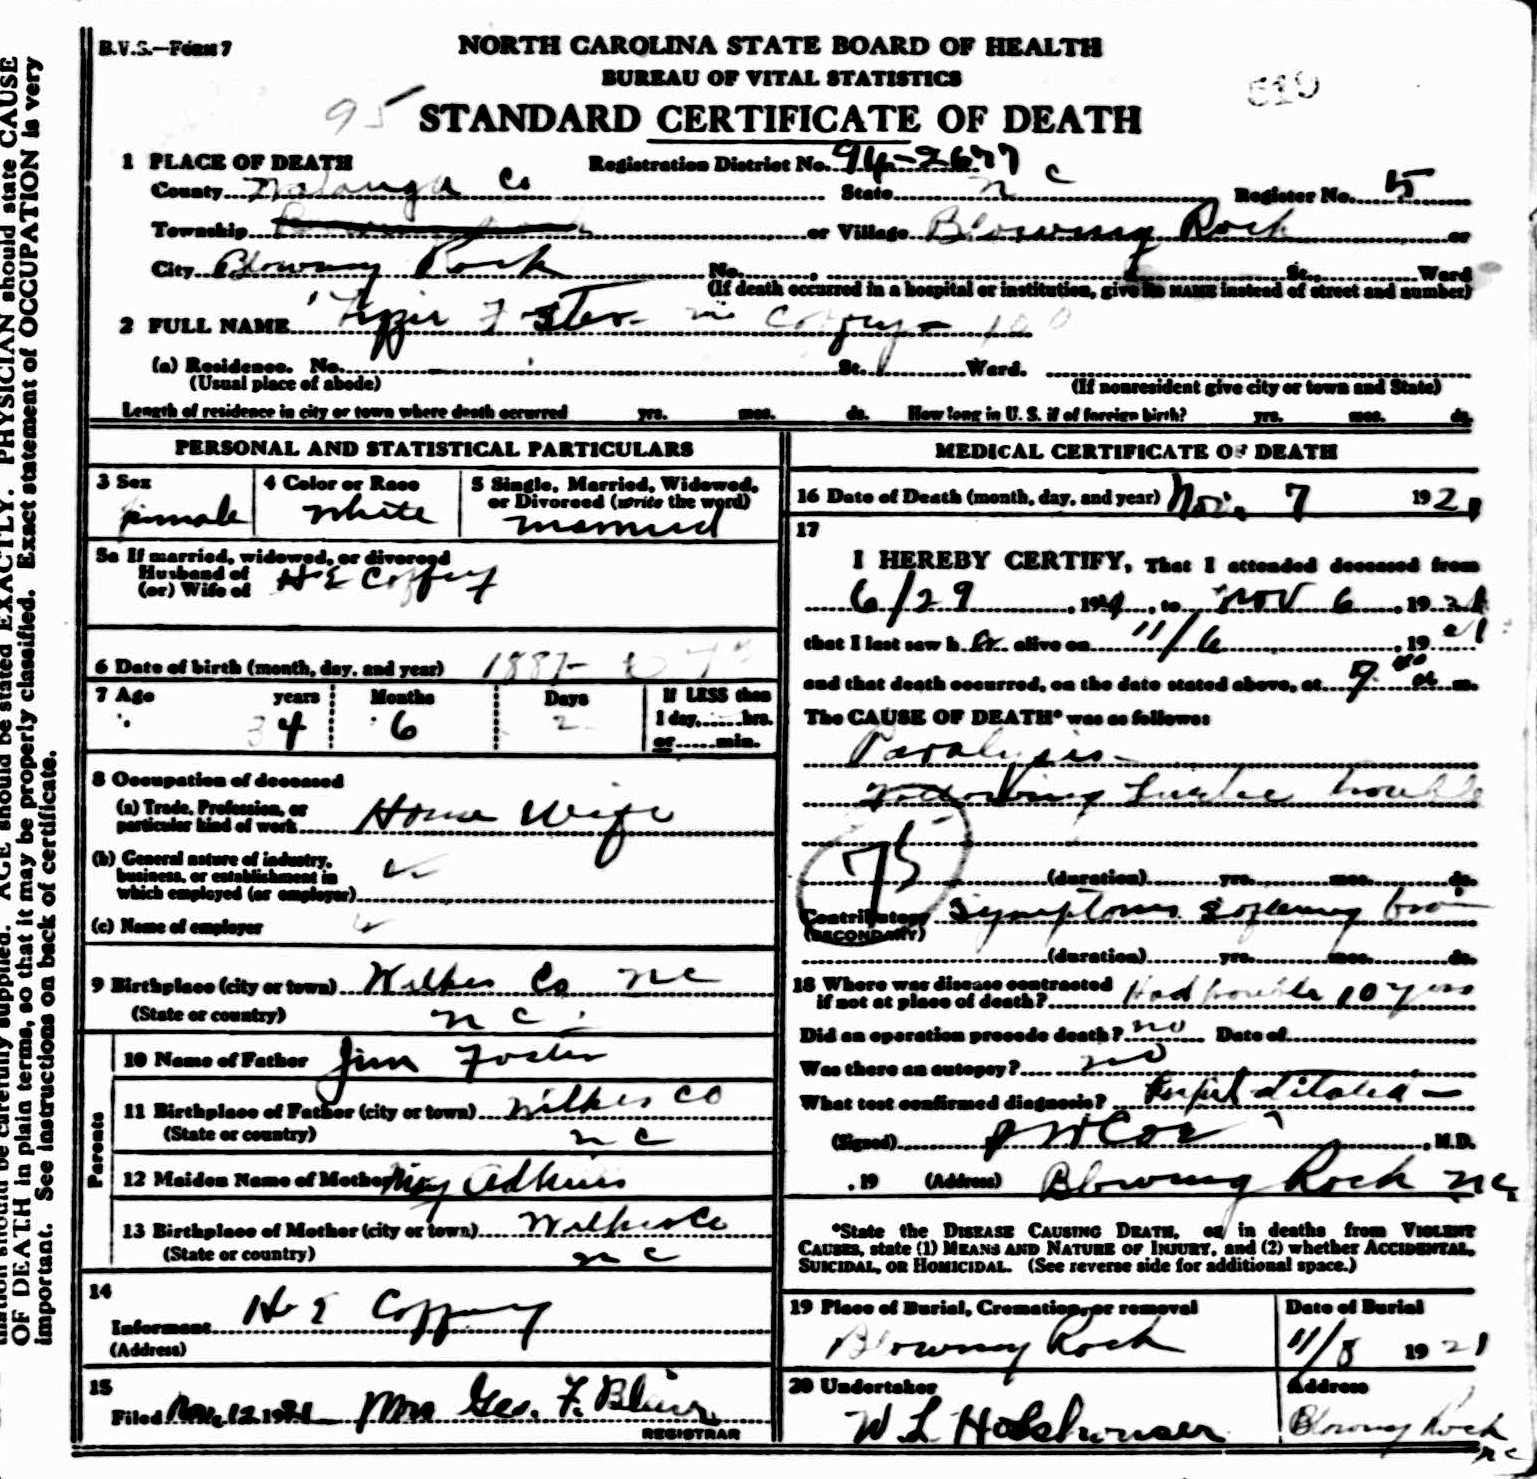 B.V.S.—Form 7
NORTH CAROLINA STATE BOARD OF HEALTH
BUREAU OF VITAL STATISTICS
95
STANDARD CERTIFICATE OF DEATH
1 PLACE OF DEATH
Registration District No. 94-2677
County Watauga Co State N C Register No. 5
Township or Village Blowing Rock or
City Blowing Rock No. St. Ward
(If death occurred in a hospital or institution, give its NAME instead of street and number)
2 FULL NAME
(a) Residence. No. St. Ward.
(Usual place of abode) (If nonresident give city or town and State)
Length of residence in city or town where death occurred yrs. mos. ds. How long in U. S. if of foreign birth? yrs. mos. ds.
PERSONAL AND STATISTICAL PARTICULARS
3 Sex 4 Color or Race 5 Single, Married, Widowed, or Divorced (write the word)
female White Married
5a If married, widowed, or divorced
Husband of
(or) Wife of H E Coffey
6 Date of birth (month, day, and year) 1887
7 Age years Months Days If LESS than
34 6 2 1 day,......hrs.
or......min.
8 Occupation of deceased
(a) Trade, Profession, or
particular kind of work House Wife
(b) General nature of industry,
business, or establishment in
which employed (or employer)
(c) Name of employer
9 Birthplace (city or town) Wilkes Co NC
(State or country) N C
Parents
10 Name of Father Jim Foster
11 Birthplace of Father (city or town) Wilkes CO
(State or country) N C
12 Maiden Name of Mother Adkins
13 Birthplace of Mother (city or town) Wilkes Co
(State or country) N C
14
Informant H E Coffey
(Address)
15
Filed Nov 12 1921 Mrs Geo. F. Blair
REGISTRAR
MEDICAL CERTIFICATE OF DEATH
16 Date of Death (month, day, and year) Nov. 7 1921
17
I HEREBY CERTIFY, That I attended deceased from
6/29, 19 , to Nov 6, 1921
that I last saw h er alive on 11/6, 1921
and that death occurred, on the date stated above, at 7 m.
The CAUSE OF DEATH* was as follows:
Paralysis
Following trouble
75
(duration) yrs. mos. ds.
Contributory Symptoms Softening brain
(SECONDARY)
(duration) yrs. mos. ds.
18 Where was disease contracted
if not at place of death? Had trouble 10 years
Did an operation precede death? no Date of
Was there an autopsy? no
What test confirmed diagnosis? dilated
(Signed) , M.D.
, 19 (Address) Blowing Rock NC
*State the DISEASE CAUSING DEATH, or in deaths from VIOLENT
CAUSES, state (1) MEANS AND NATURE OF INJURY, and (2) whether ACCIDENTAL,
SUICIDAL, OR HOMICIDAL. (See reverse side for additional space.)
19 Place of Burial, Cremation, or removal Date of Burial
Blowing Rock 11/8 1921
20 Undertaker Address
W. L. Holshouser Blowing Rock
NC
OF DEATH in plain terms, so that it may be properly classified. Exact statement of OCCUPATION is very
important. See instructions on back of certificate.